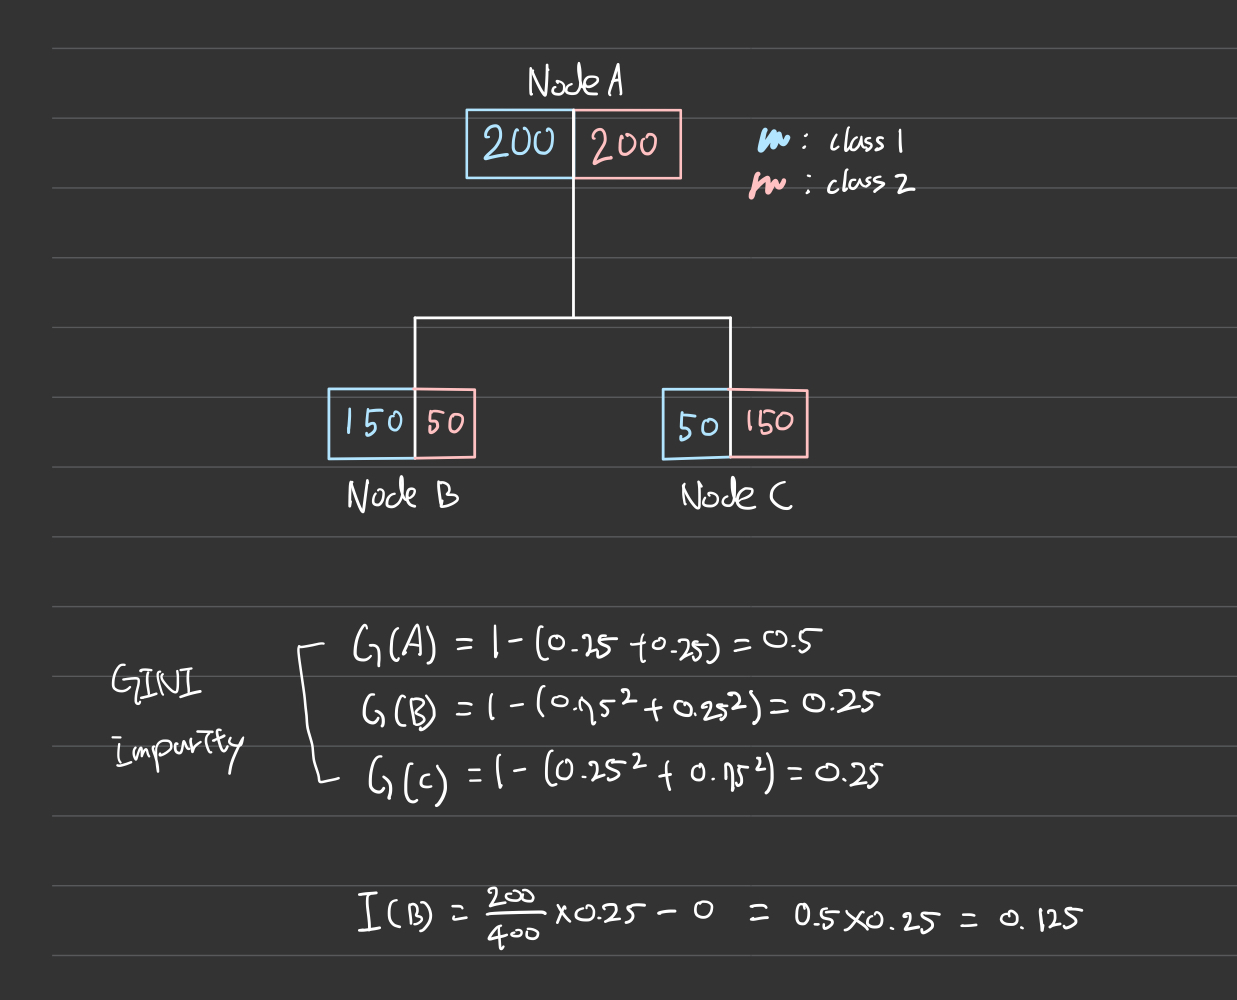 Node A
200 200
: class 1
: class 2
150 50
50 150
Node B
Node C
GINI
impurity
G(A) = 1 - (0.25 + 0.25) = 0.5
G(B) = 1 - (0.75² + 0.25²) = 0.25
G(C) = 1 - (0.25² + 0.75²) = 0.25
I(B) = 200/400 × 0.25 - 0 = 0.5 × 0.25 = 0.125